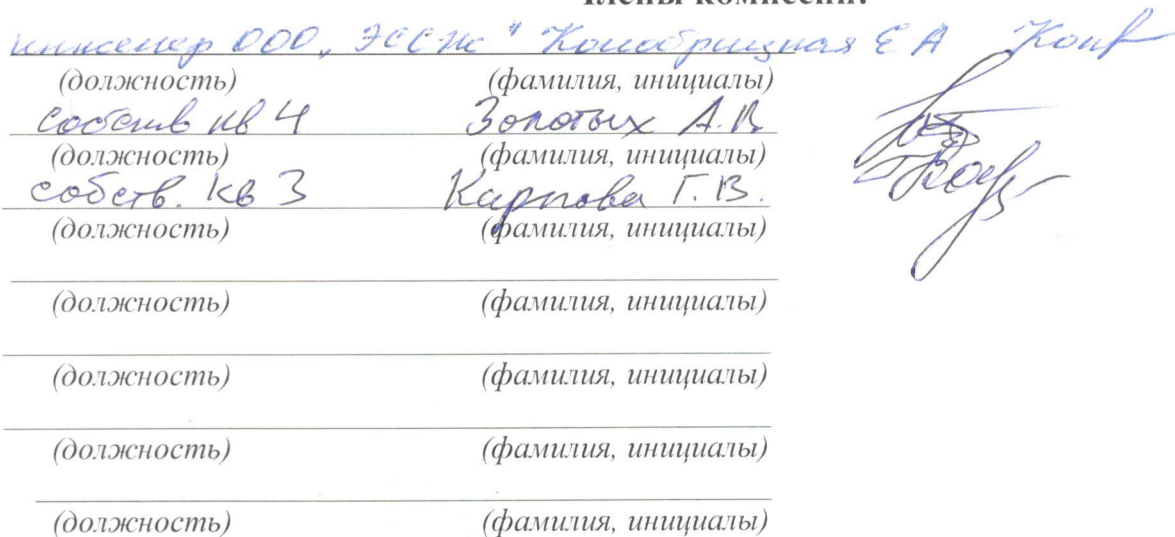 Члены комиссии:
инженер ООО „ЭССЖ" Е А
(должность) (фамилия, инициалы)
собств кв 4 Золотых А.В.
(должность) (фамилия, инициалы)
собств. кв 3 Карпова Г.В.
(должность) (фамилия, инициалы)
(должность) (фамилия, инициалы)
(должность) (фамилия, инициалы)
(должность) (фамилия, инициалы)
(должность) (фамилия, инициалы)